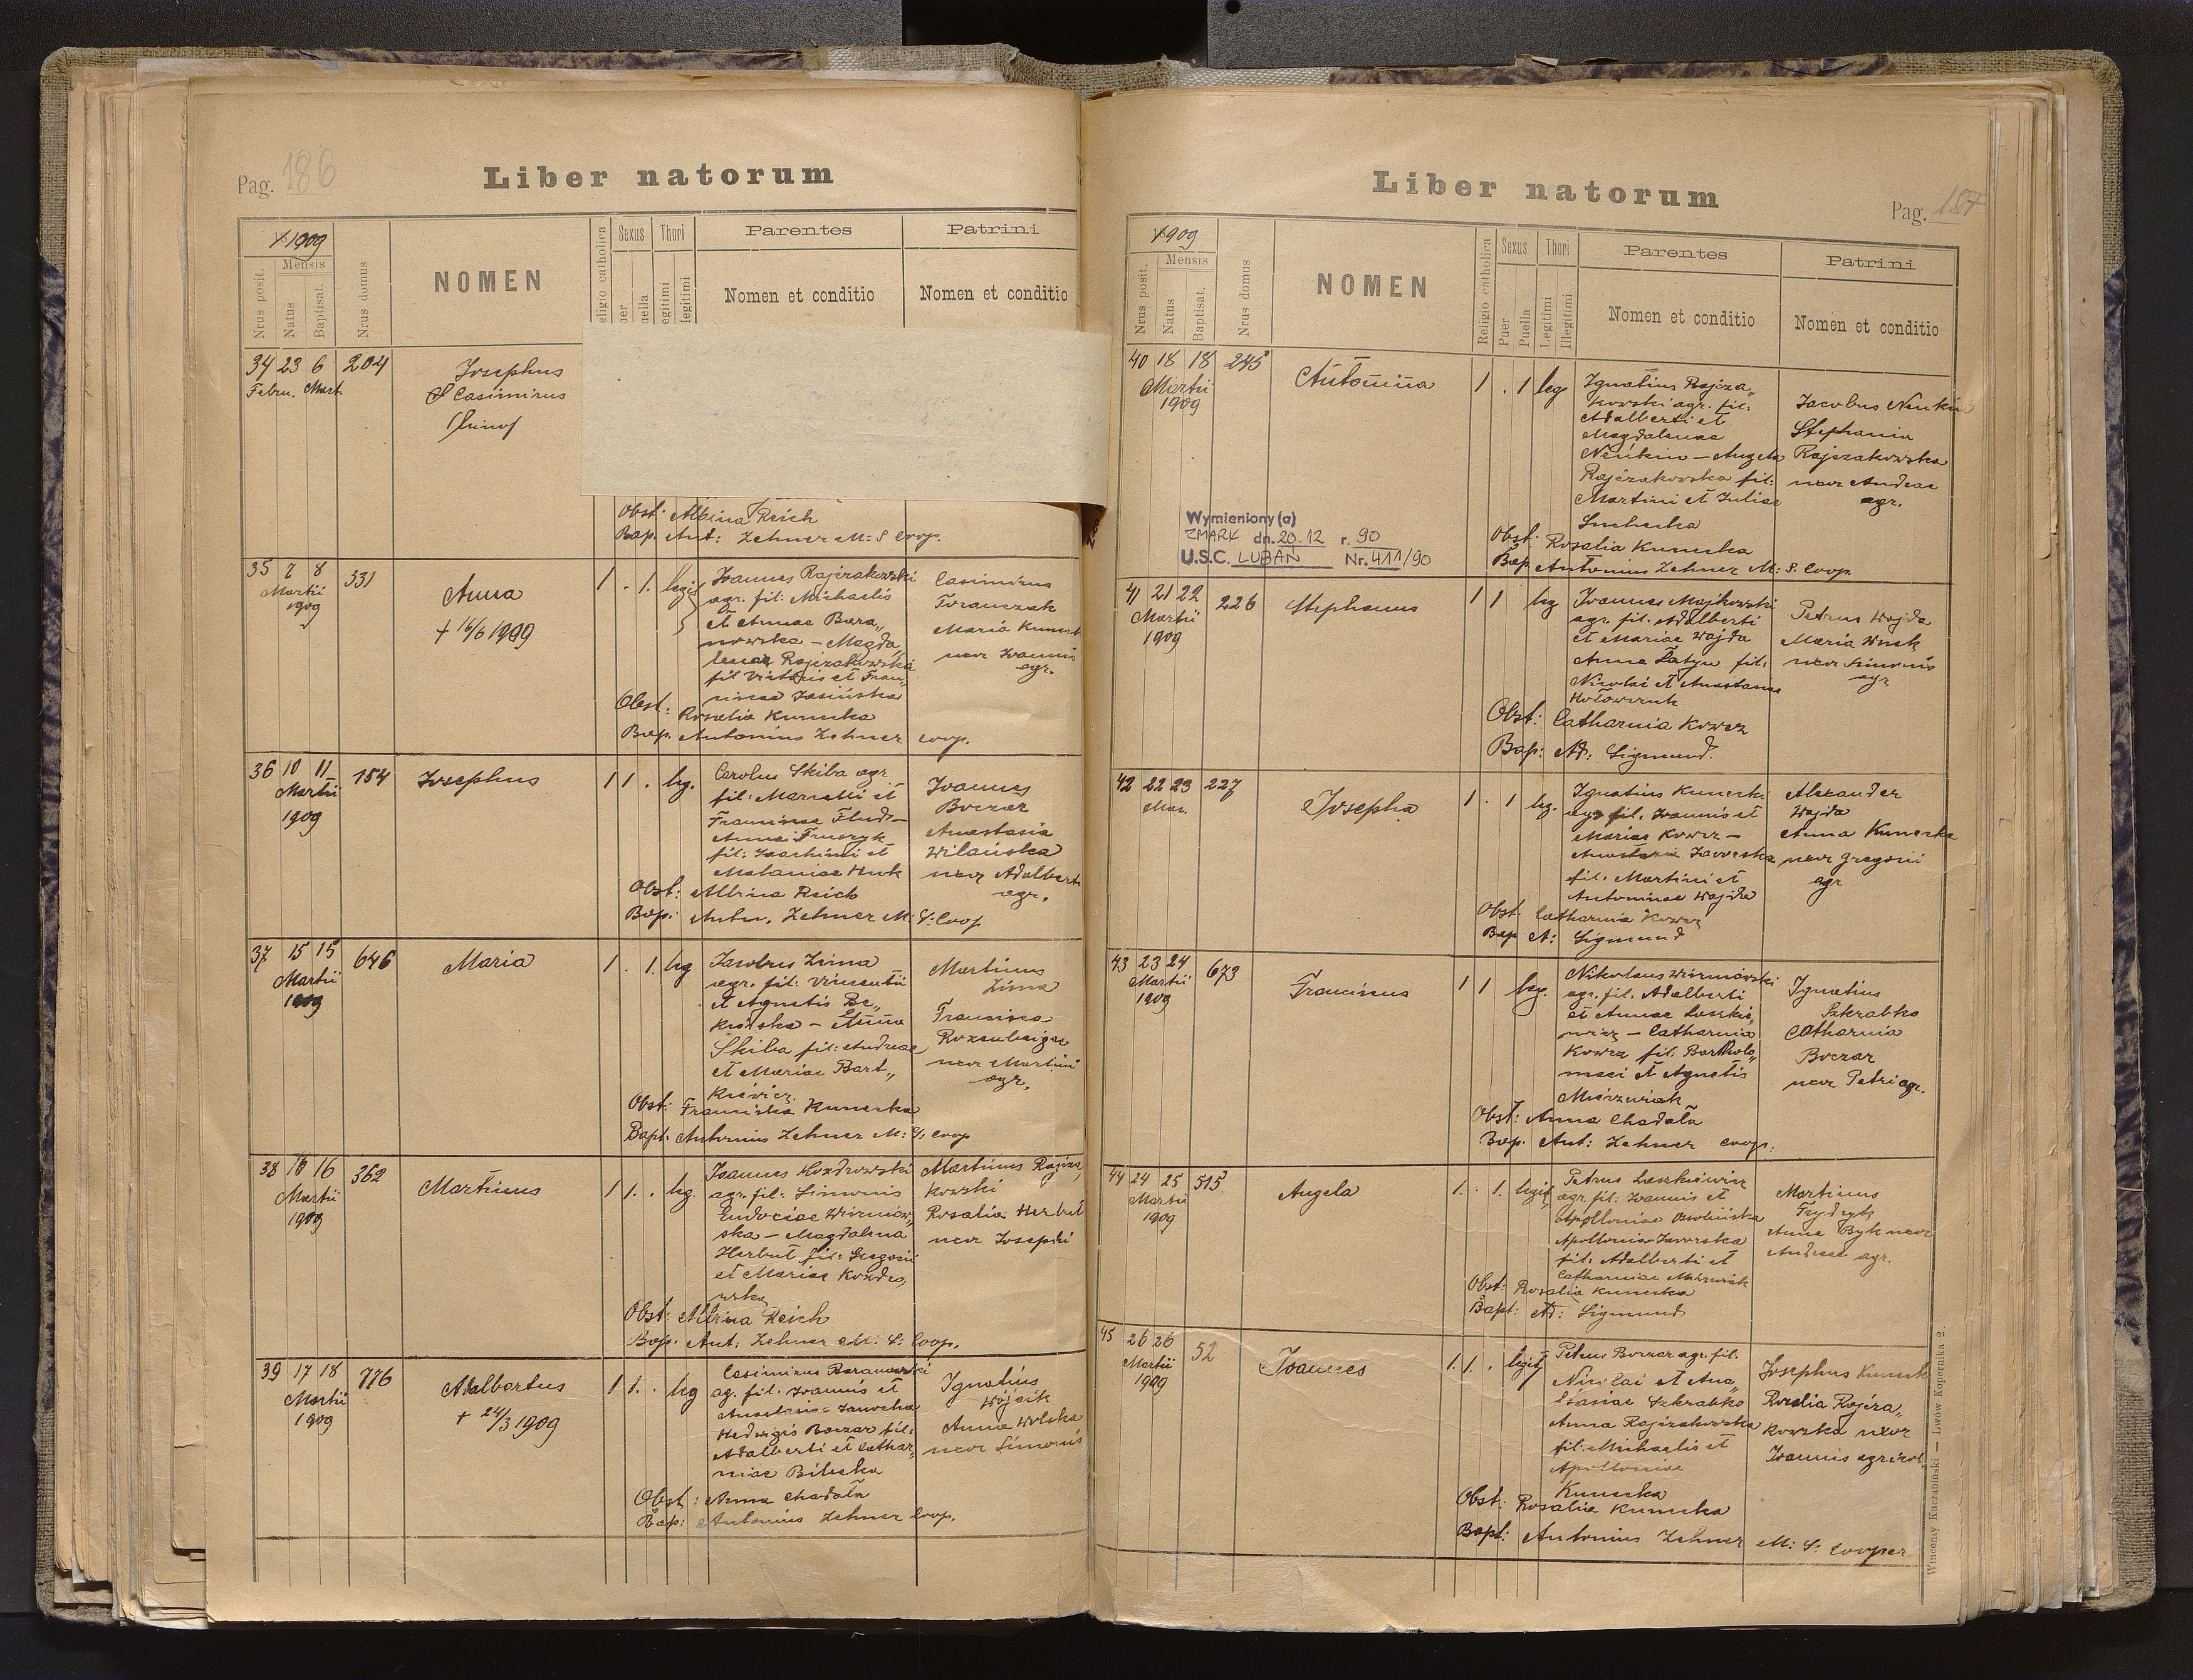 Pag. 186
Liber natorum
1909
Mensis
Nrus posit.
Natus
Baptisat.
Nrus domus
NOMEN
Sexus
Thori
Parentes
Nomen et conditio
Patrini
Nomen et conditio
34 23 6 204
Febru. Mart.
Josephus
Casimirus
Obst: Albina Reich
Bap. Ant: Zehner M: S Coop.
35 7 8 331
Martii
1909
Anna
+ 16/6 1909
1 . 1. legit
Joannes Rajczakowski
agr. fil: Michaelis
et Annae Bara„
nowska – Magda„
lena Rajczakowska
fil Victoris et Fran„
ciscae Jasińska
Casimirus
Franczak
Maria Kunick
uxor Joannis
agr.
Obst: Rosalia Kunicka
Bap. Antonius Zehner coop.
36 10 11 154
Martii
1909
Josephus
1 1 . leg.
Carolus Skiba agr
fil: Marcelli et
Franciscae Flud–
Anna Fruczyk
fil: Joachimi et
Melaniae Huk
Joannes
Boczar
Anastasia
Wilańska
uxor Adalberti
agr.
Obst: Albina Reich
Bap: Anton. Zehner M: S: Coop
37 15 15 646
Martii
1909
Maria
1 . 1. leg
Jacobus Zima
agr. fil: Vincentii
et Agnetis Be„
kińska – Anna
Skiba fil: Andreae
et Mariae Bart„
kiewicz.
Martinus
Zima
Francisca
Rozenbeiger
uxor Martini
agr.
Obst: Franciska Kunicka
Bapt: Antonius Zehner M: S: Coop
38 16 16 362
Martii
1909
Martinus
1 1. . leg.
Joannes Kondrowski
agr. fil: Simonis
Eudociae Wiśniow„
ska – Magdalena
Herbut fil: Gregorii
et Mariae Kondro„
wska
Martinus Rajcza„
kowski
Rosalia Herbut
uxor Josephi
Obst: Albina Reich
Bap. Ant: Zehner M: S: Coop.
39 17 18 776
Martii
1909
Adalbertus
+ 24/3 1909
1 1. . leg
Casimirus Baranowski
ag. fil. Joannis et
Anastasia Janocha
Hedwigis Boczar fil:
Adalberti et Cathar„
inae Bilaska
Ignatius
Wójcik
Anna Wolska
uxor Simonis
Obst: Anna Chadała
Bap: Antonius Zehner Coop.
Liber natorum
Pag. 187
1909
Mensis
Nrus posit.
Natus
Baptisat.
Nrus domus
NOMEN
Religio catholica
Sexus
Puer
Puella
Thori
Legitimi
Illegitimi
Parentes
Nomen et conditio
Patrini
Nomen et conditio
40 18 18 245
Martii
1909
Antonina
1 . 1 leg
Ignatius Rajcza„
kowski agr. fil:
Adalberti et
Magdalenae
Neukin – Angela
Rajczakowska fil:
Martini et Juliae
Suchecka
Jacobus Neukin
Stephania
Rajczakowska
uxor Andreae
agr.
Wymieniony (a)
ZMARK dn. 20.12 r. 90
U.S.C. LUBAŃ Nr. 411/90
Obst: Rosalia Kunicka
Bap. Antonius Zehner M: S. Coop.
41 21 22 226
Martii
1909
Stephanus
1 1 leg
Joannes Majkowski
agr. fil: Adalberti
et Mariae Wajda
Anna Fatyn fil:
Nicolai et Anastasiae
Hołowczuk
Petrus Wajda
Maria Wnuk
uxor Simonis
agr
Obst: Catharina Kowcz
Bap: Ad: Sigmund.
42 22 23 227
Mar.
Josepha
1 . 1 leg.
Ignatius Kunicki
agr fil. Joannis et
Mariae Kowcz –
Anastasia Jaworska
fil. Martini et
Antoninae Wajda
Alexander
Wajda
Anna Kunicka
uxor Gregorii
agr
Obst: Catharina Kowcz
Bap A: Sigmund
43 23 24 673
Martii
1909
Franciscus
1 1 leg.
Nikolaus Wiśniowski
agr. fil. Adalberti
et Annae Laszkie„
wicz – Catharina
Kowcz fil: Bartholo„
maei et Agnetis
Mierzwiak
Ignatius
Szkrabko
Catharina
Boczar
uxor Petri agr.
Obst: Anna Chadała
Bap. Ant: Zehner coop.
44 24 25 515
Martii
1909
Angela
1. . 1. legit
Petrus Laszkiewicz
agr. fil: Joannis et
Apolloniae Osolińska
Apollonia Jaworska
fil: Adalberti et
Catharinae Mierzwiak
Martinus
Frydryk
Anna Byk uxor
Andreae agr.
Obst: Rosalia Kunicka
Bapt: Ad: Sigmund
45 26 26 52
Martii
1909
Joannes
1. 1. . legit
Petrus Boczar agr. fil.
Nicolai et Ana„
stasiae Szkrabko
Anna Rajczakowska
fil: Michaelis et
Apolloniae
Kunicka
Josephus Kunick
Rosalia Rajcza„
kowska uxor
Joannis agricol.
Obst: Rosalia Kunicka
Bapt: Antonius Zehner M: S: cooper
Wincenty Kuczabiński — Lwów Kopernika 2.